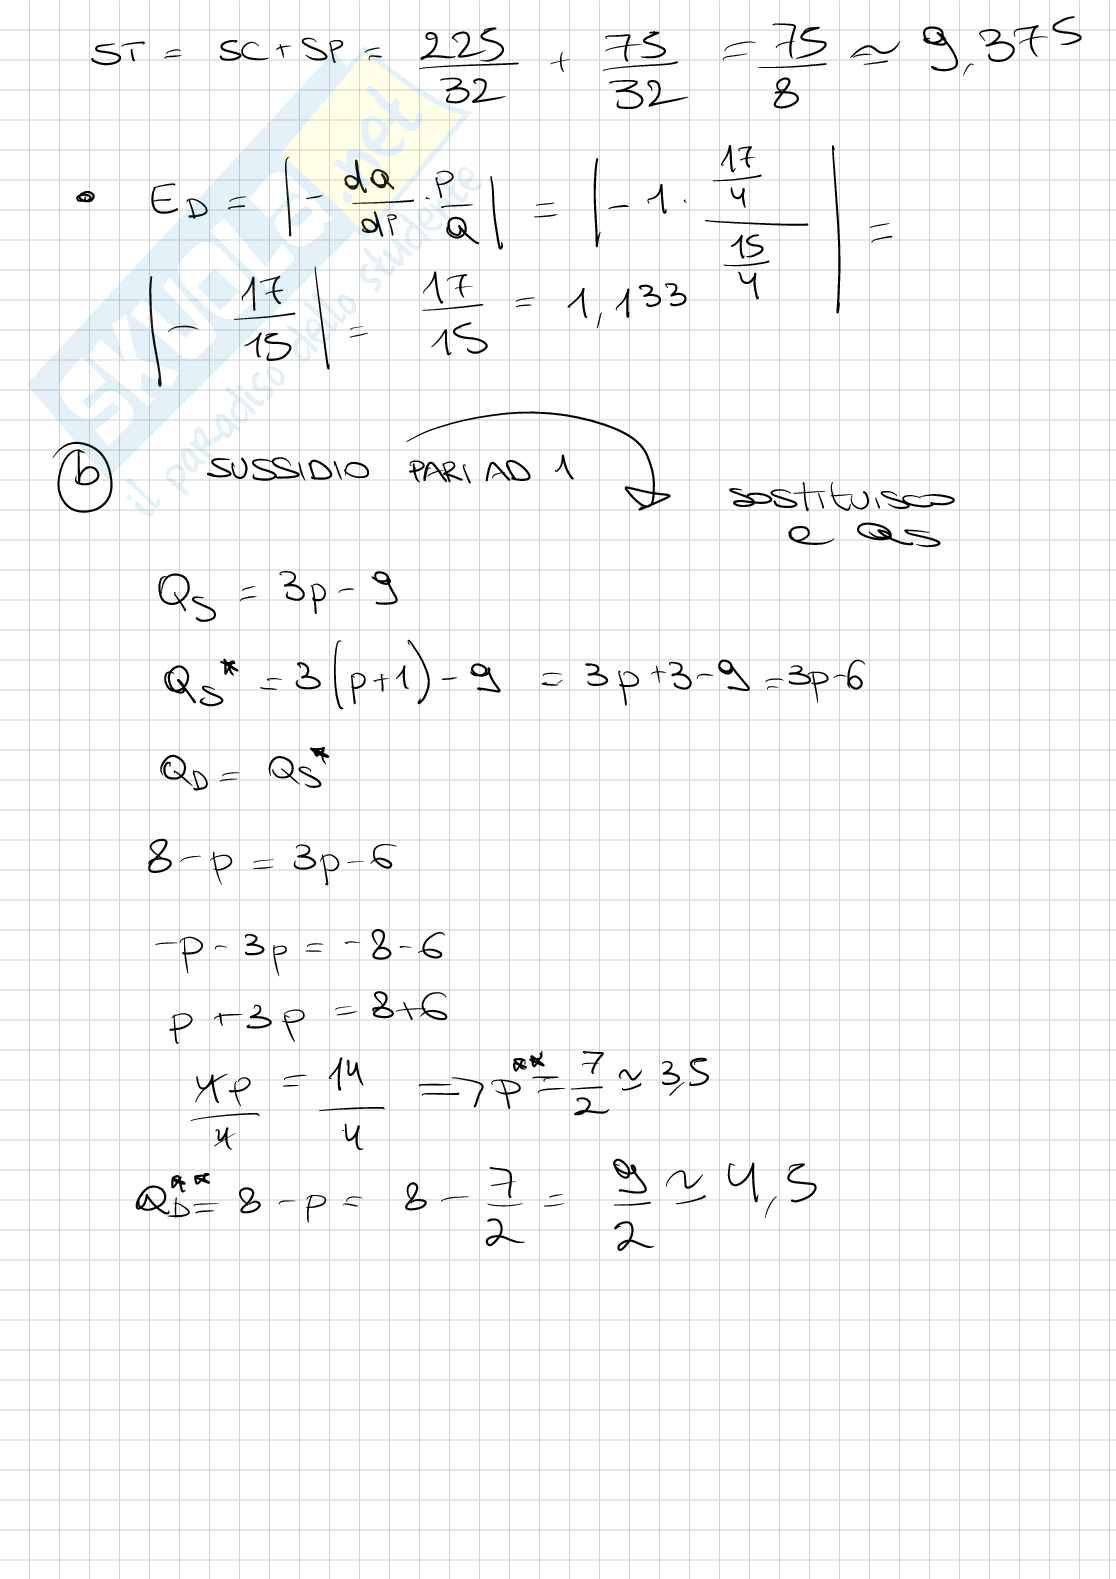 ST = SC + SP = 225/32 + 75/32 = 75/8 ≃ 9,375
• E_D = |- dQ/dP · P/Q| = |-1 · (17/4)/(15/4)| =
|- 17/15| = 17/15 = 1,133
SKUOLA.net
il paradiso dello studente
b SUSSIDIO PARI AD 1
SOSTITUISCO
e QS
Q_S = 3p - 9
Q_S* = 3(p+1) - 9 = 3p + 3 - 9 = 3p - 6
Q_D = Q_S*
8 - p = 3p - 6
-p - 3p = -8 - 6
p + 3p = 8 + 6
4p/4 = 14/4 => p** = 7/2 ≃ 3,5
Q_D** = 8 - p = 8 - 7/2 = 9/2 ≃ 4,5